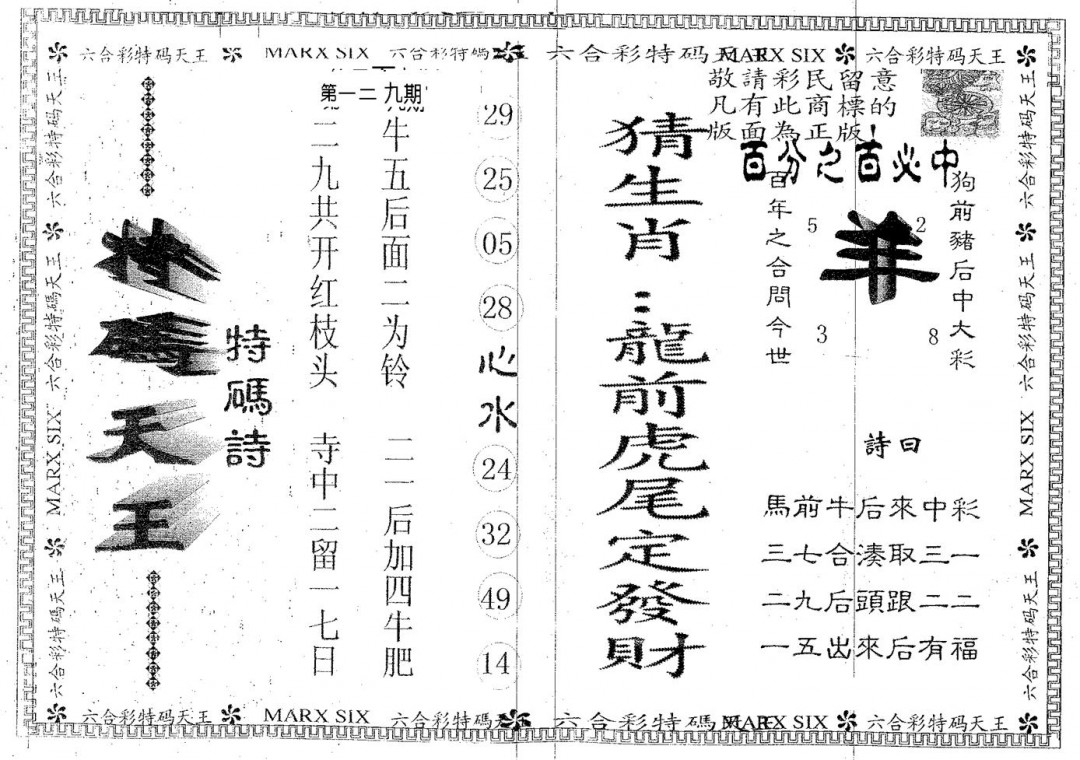 六合彩特码天王 MARX SIX 六合彩特碼天王 六合彩特码天王 MARX SIX 六合彩特码天王
敬請彩民留意
凡有此商標的
版面為正版!
百分之百必中
狗前豬后中大彩
羊
5 2
3 8
百年之合問今世
詩曰
馬前牛后來中彩
三七合湊取三一
二九后頭跟二二
一五出來后有福
猜生肖:龍前虎尾定發財
29
25
05
28
心水
24
32
49
14
第一二九期
牛五后面二为铃 二一后加四牛肥
二九共开红枝头 寺中二留一七日
特碼詩
特碼天王
六合彩特码天王 六合彩特碼天王 MARX SIX 六合彩特码天王
六合彩特码天王 六合彩特码天王 MARX SIX 六合彩特码天王
六合彩特码天王 MARX SIX 六合彩特碼天王 六合彩特碼天王 MARX SIX 六合彩特码天王